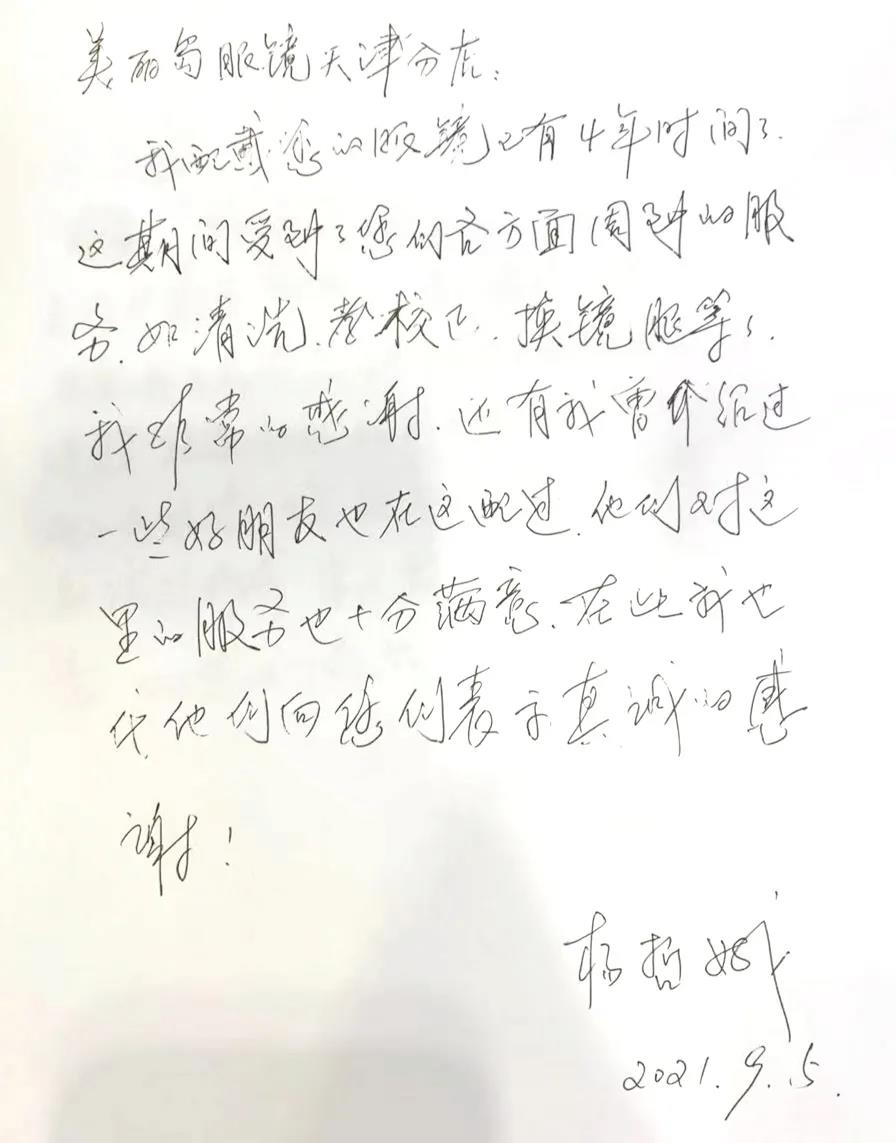 美丽岛眼镜天津分店:
我配戴您的眼镜已有4年时间了.
这期间受到了您们各方面周到的服
务.如清洗、校正、换镜腿等了.
我非常的感谢.还有我曾介绍过
一些好朋友也在这配过.他们对这
里的服务也十分满意.在此我也
代他们向您们表示真诚的感
谢!
杨哲
2021.9.5.